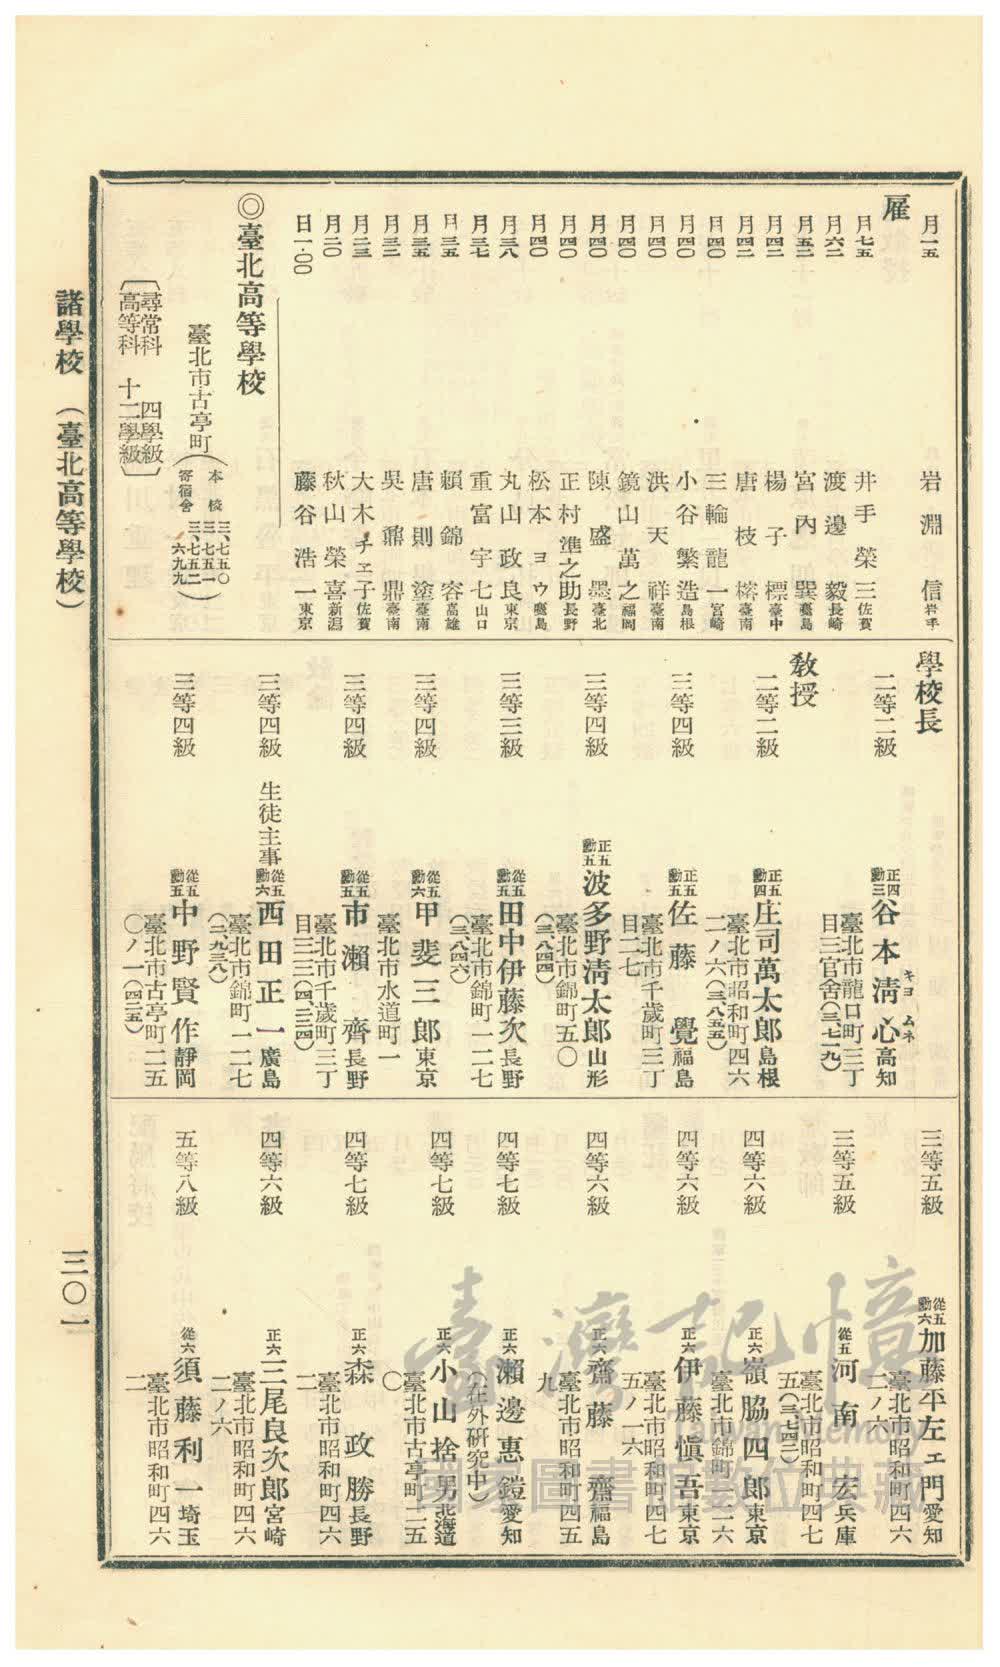 月一五 岩淵信 岩手
雇
月七五 井手榮三 佐賀
月六二 渡邊毅 長崎
月五二 宮內巽 鹿島
月四二 楊子標 臺中
月四二 唐枝榕 臺南
月四〇 三輪龍一 宮崎
月四〇 小谷繁造 島根
月四〇 洪天祥 臺南
月四〇 鏡山萬之 福岡
月四〇 陳盛墨 臺北
月四〇 正村準之助 長野
月四〇 松本ヨウ 鹿島
月三八 丸山政良 東京
月三七 重富宇七 山口
月三五 賴錦容 高雄
月三五 唐則塗 臺南
月三二 吳鼐鼎 臺南
月二三 大木チヱ子 佐賀
月二〇 秋山榮喜 新潟
日一·〇〇 藤谷浩一 東京
◎臺北高等學校
臺北市古亭町
本校 三、七五〇
三、七五一
寄宿舍 三、七五二
六九九
尋常科 四學級
高等科 十二學級
學校長
二等二級 正四勳三 谷本淸心 高知
キヨ ムネ
臺北市龍口町三丁
目三官舍(三、七一九)
敎授
二等二級 正五勳四 庄司萬太郎 島根
臺北市昭和町四六
二ノ六(三、八五五)
三等四級 正五勳五 佐藤覺 福島
臺北市千歲町三丁
目二七
三等四級 正五勳五 波多野淸太郎 山形
臺北市錦町五〇
(三、八四四)
三等三級 從五勳五 田中伊藤次 長野
臺北市錦町一二七
(三、八四六)
三等四級 從五勳六 甲斐三郎 東京
臺北市水道町一
三等四級 從五勳五 市瀨齊 長野
臺北市千歲町三丁
目三三(四、二二四)
三等四級 生徒主事 從五勳六 西田正一 廣島
臺北市錦町一二七
(三、九三八)
三等四級 從五勳五 中野賢作 靜岡
臺北市古亭町二五
〇ノ一(四二五)
三等五級 從五勳六 加藤平左ェ門 愛知
臺北市昭和町四六
二ノ六
三等五級 從五 河南宏 兵庫
臺北市昭和町四七
五(三、七四二)
四等六級 正六 嶺脇四郎 東京
臺北市錦町一二六
四等六級 正六 伊藤愼吾 東京
臺北市昭和町四七
五ノ一六
四等六級 正六 齋藤齋 福島
臺北市昭和町四五
九
四等七級 正六 瀨邊惠鎧 愛知
(在外硏究中)
四等七級 正六 小山捨男 北海道
臺北市古亭町二五
〇
四等七級 正六 森政勝 長野
臺北市昭和町四六
二
四等六級 正六 三尾良次郎 宮崎
臺北市昭和町四六
二ノ六
五等八級 從六 須藤利一 埼玉
臺北市昭和町四六
二
諸學校 (臺北高等學校)
三〇一
臺灣記憶
Taiwan Memory
國家圖書館數位典藏